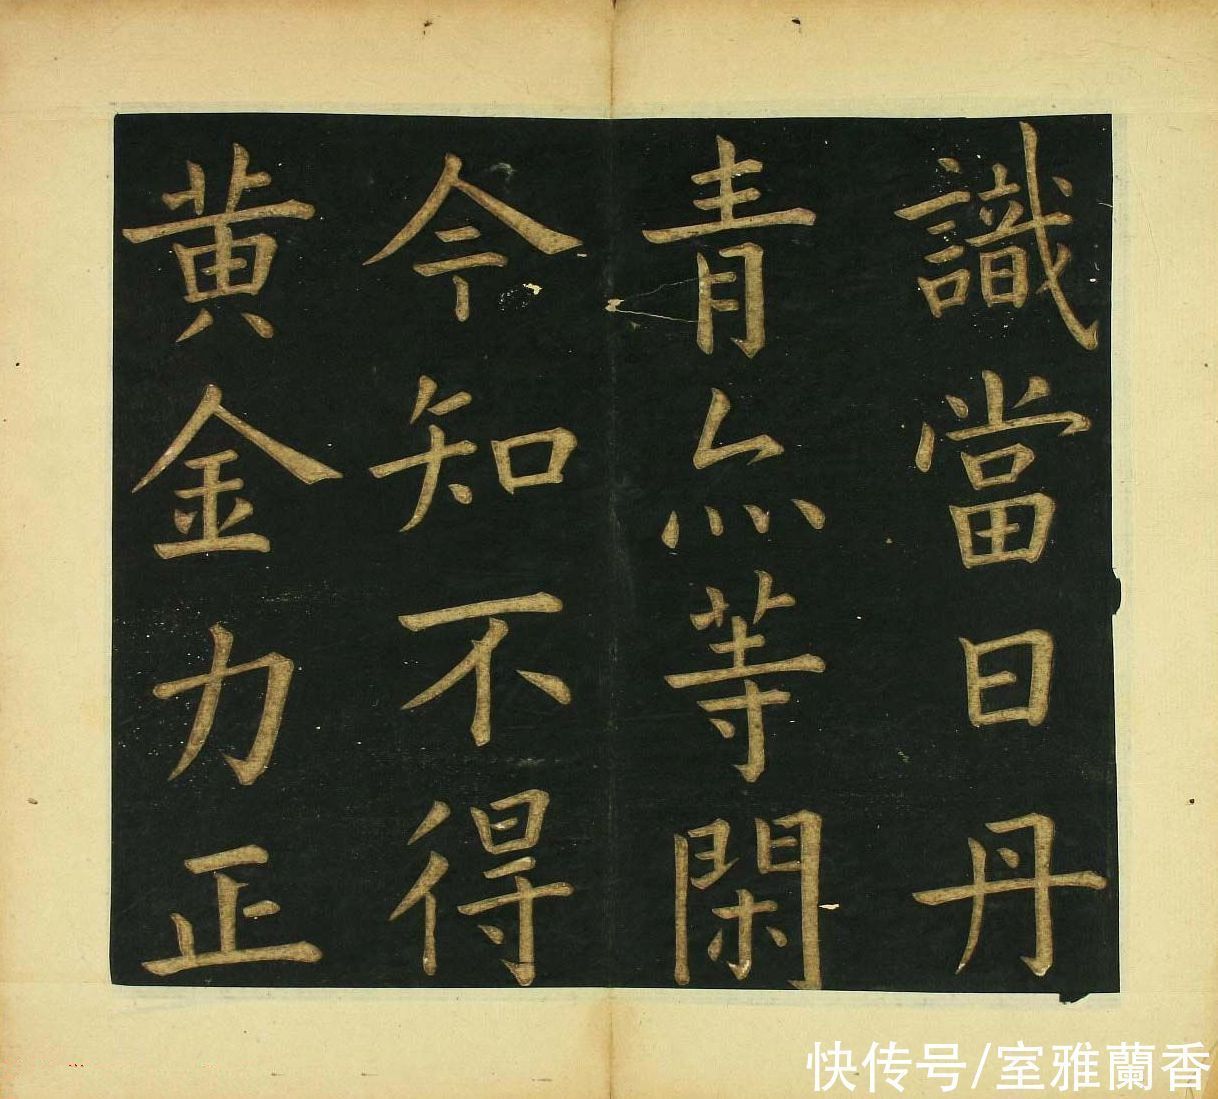 識當日丹
青等閑
今知不得
黄金力正
快传号/室雅蘭香